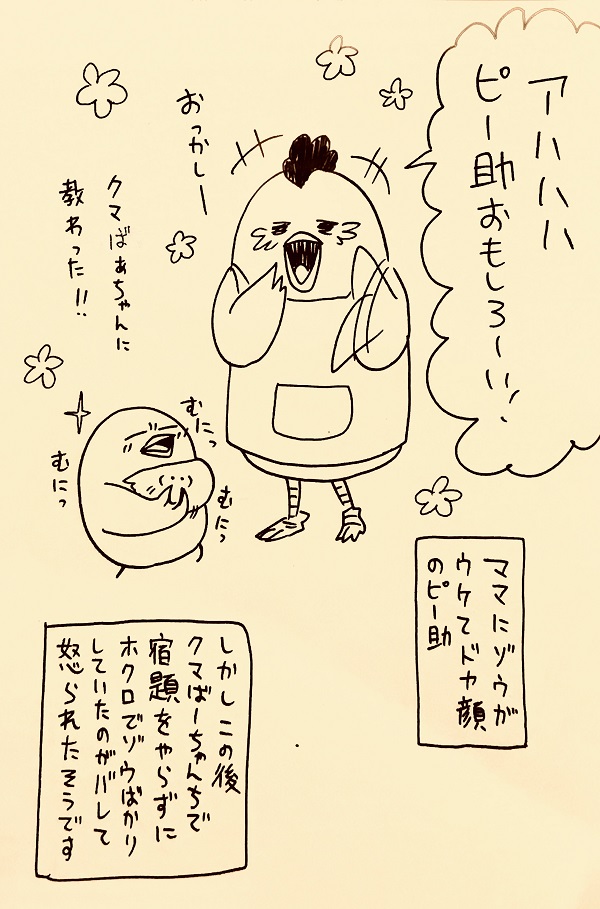 アハハハ
ピー助おもしろ〜い!
おっかしー
クマばぁちゃんに
教わった!!
むにっ
むにっ
むにっ
ママにゾウが
ウケてドヤ顔
のピー助
しかしこの後
クマばーちゃんちで
宿題をやらずに
ホクロでゾウばかり
していたのがバレして
怒られたそうです